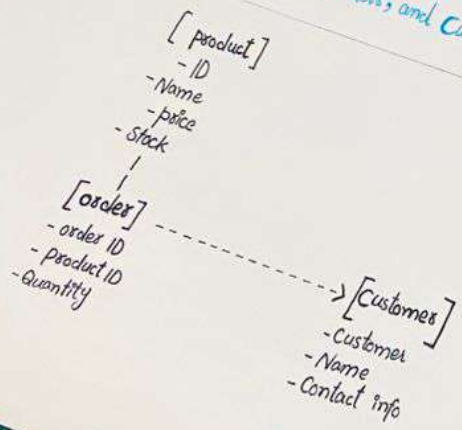 , and
[product]
- ID
- Name
- price
- Stock
[order]
- order ID
- product ID
- Quantity
[Customer]
- Customer
- Name
- Contact info